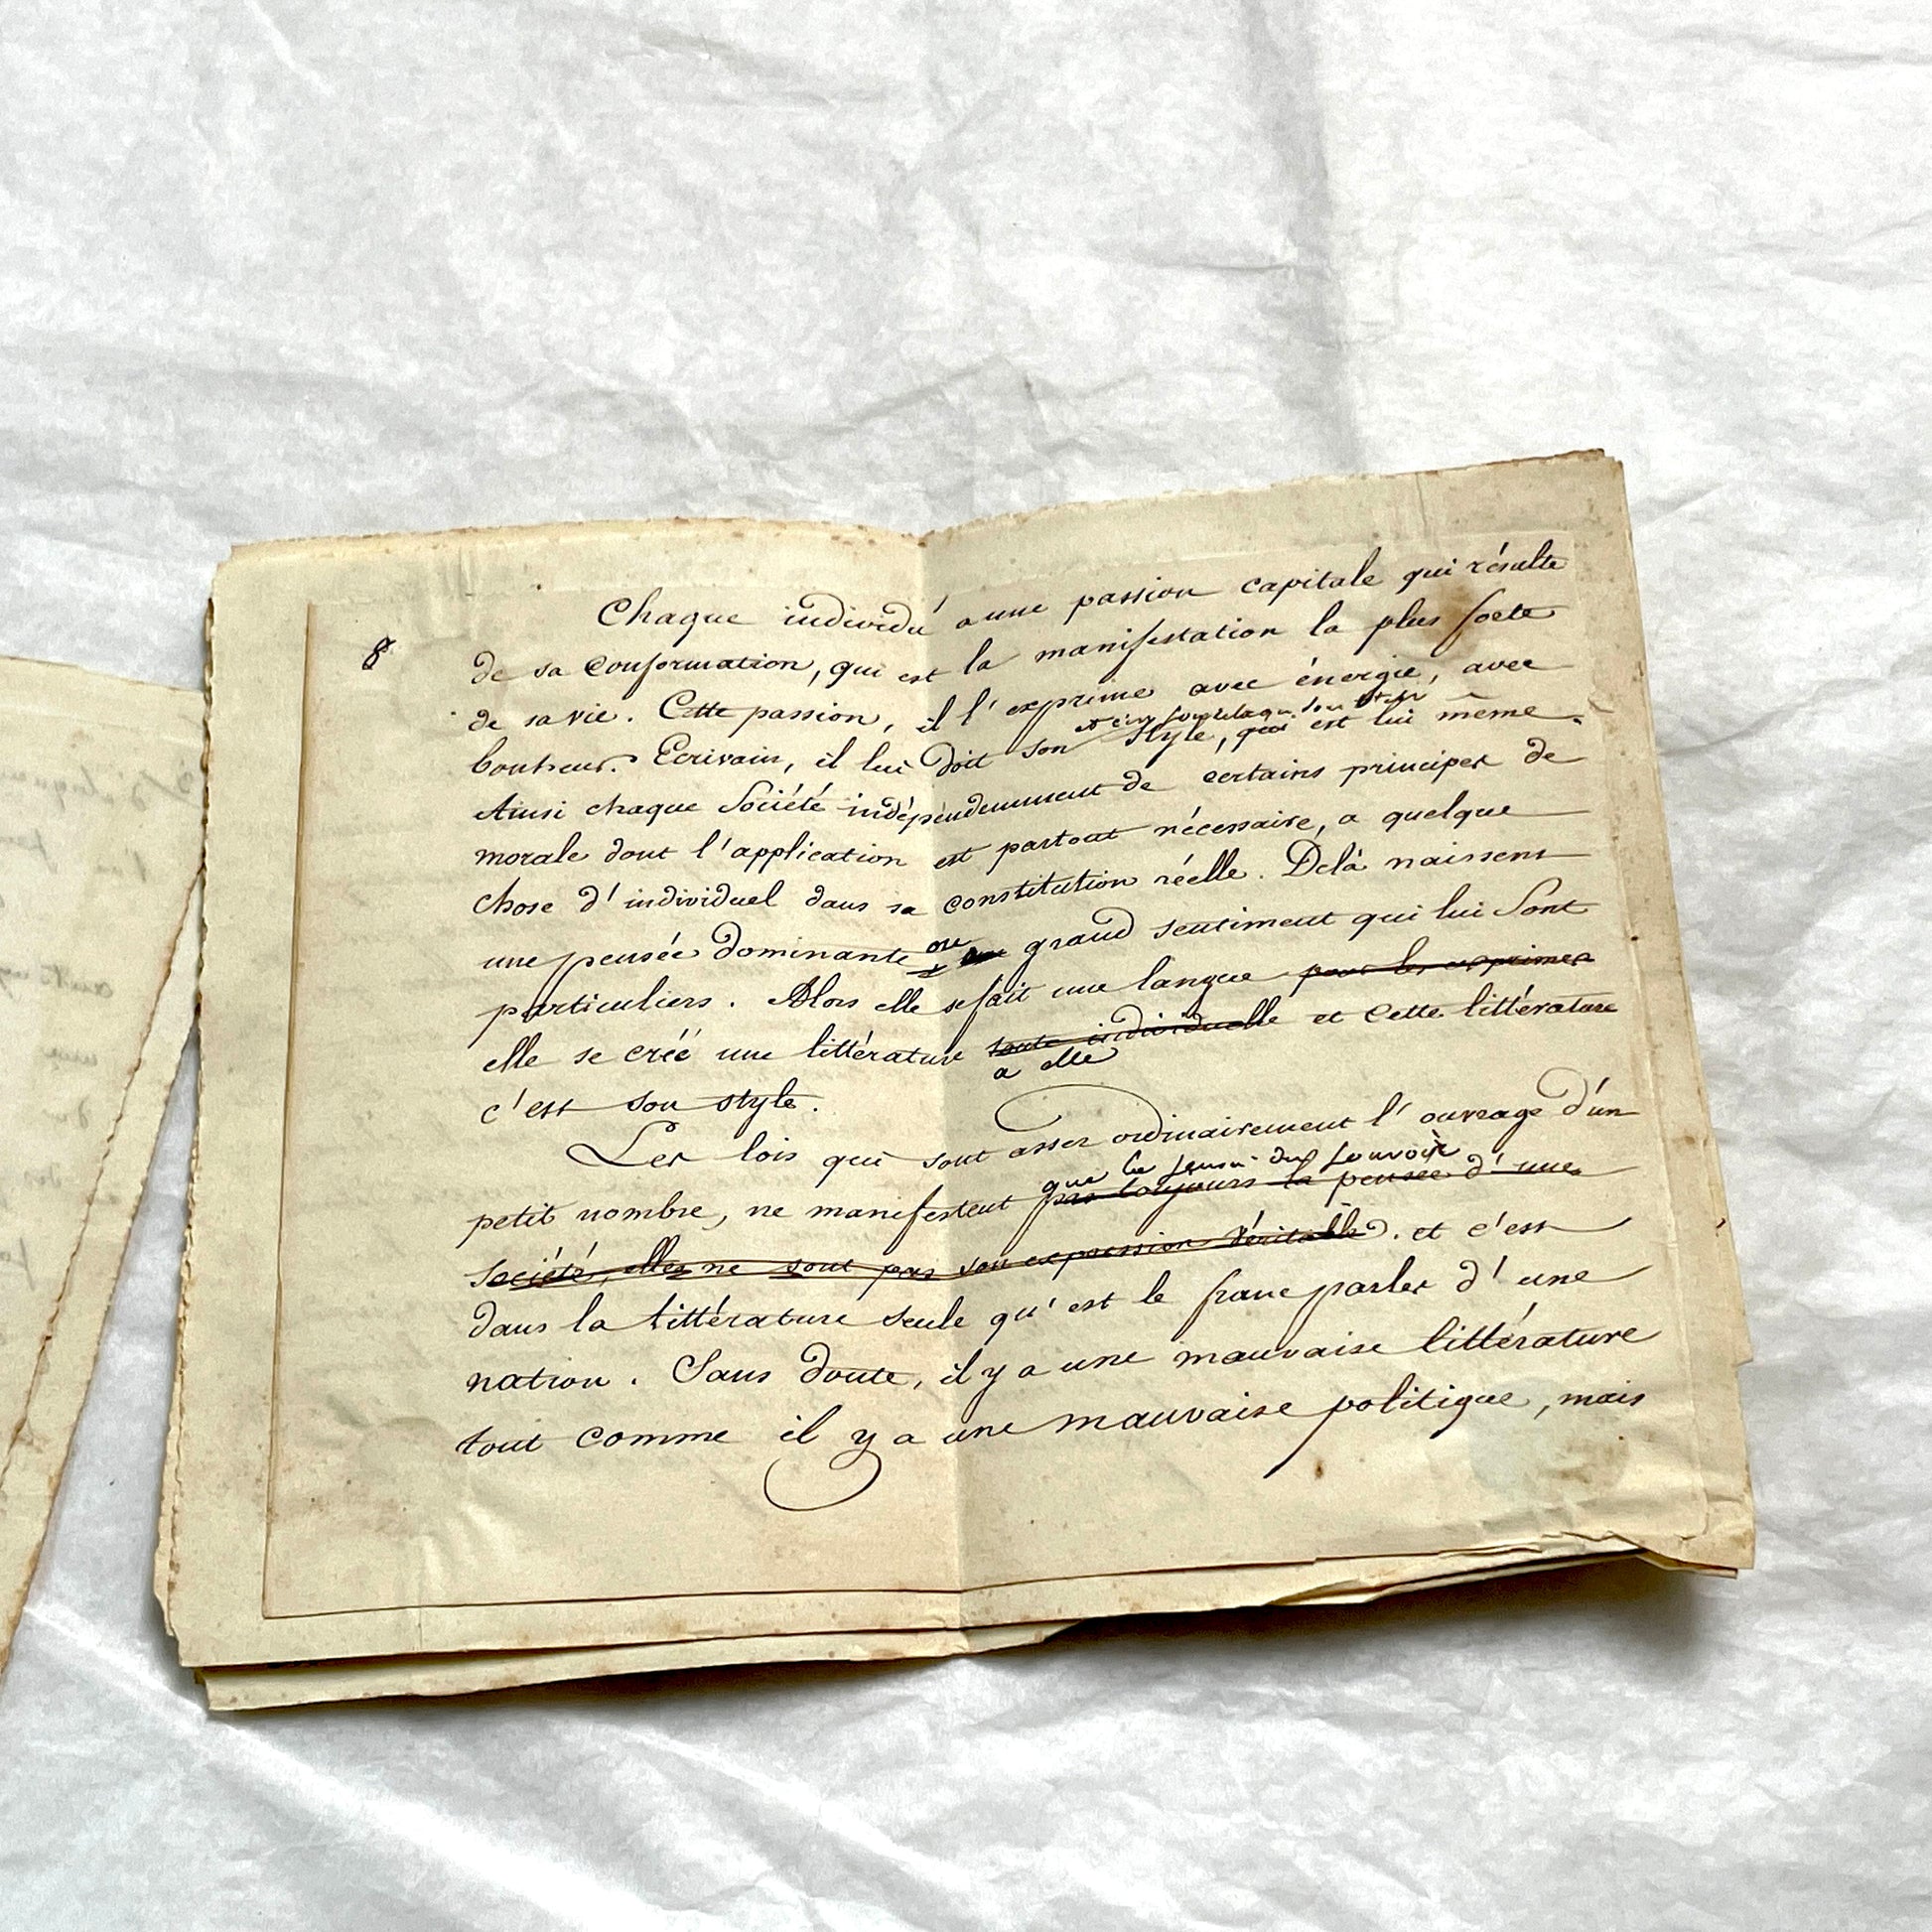 8
Chaque individu a une passion capitale qui résulte
de sa conformation, qui est la manifestation la plus forte
de sa vie. Cette passion, il l'exprime avec énergie, avec
bonheur. Ecrivain, il lui doit son style, qui est lui même.
Ainsi chaque Société indépendemment de certains principes de
morale dont l'application est partout nécessaire, a quelque
chose d'individuel dans sa constitution réelle. Delà naissent
une pensée dominante ou grand sentiment qui lui sont
particuliers. Alors elle se fait une langue pour les exprimer
elle se créé une littérature toute individuelle et cette littérature
a elle
c'est son style.
Les lois qui sont assez ordinairement l'ouvrage d'un
que la du pouvoir
petit nombre, ne manifestent pas toujours la pensée d'une
Société, elles ne sont pas son expression véritable. et c'est
dans la littérature seule qu'est le franc parler d'une
nation. Sans doute, il y a une mauvaise littérature
tout comme il y a une mauvaise politique, mais